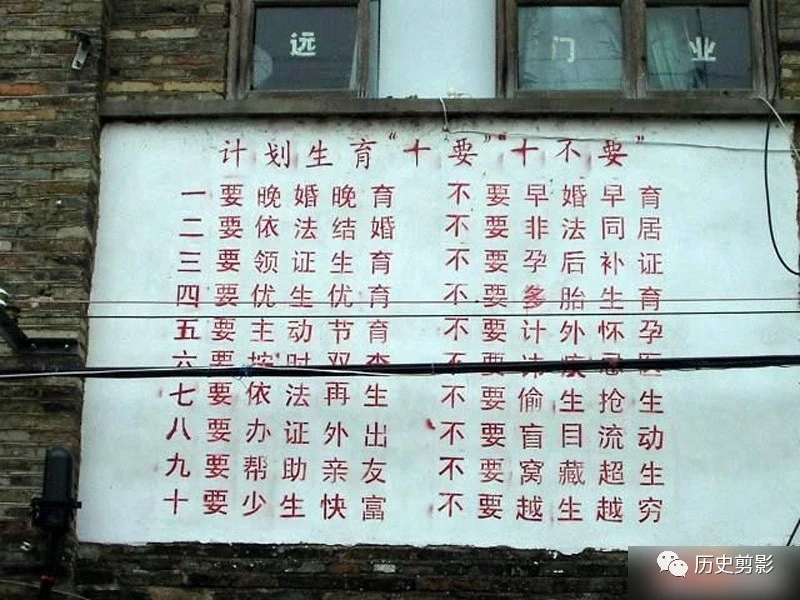 远 门 业
计划生育“十要”“十不要”
一要晚婚晚育 不要早婚早育
二要依法结婚 不要非法同居
三要领证生育 不要孕后补证
四要优生优育 不要多胎生育
五要主动节育 不要计外怀孕
六要按时双查 不要讳疾忌医
七要依法再生 不要偷生抢生
八要办证外出 不要盲目流动
九要帮助亲友 不要窝藏超生
十要少生快富 不要越生越穷
历史剪影